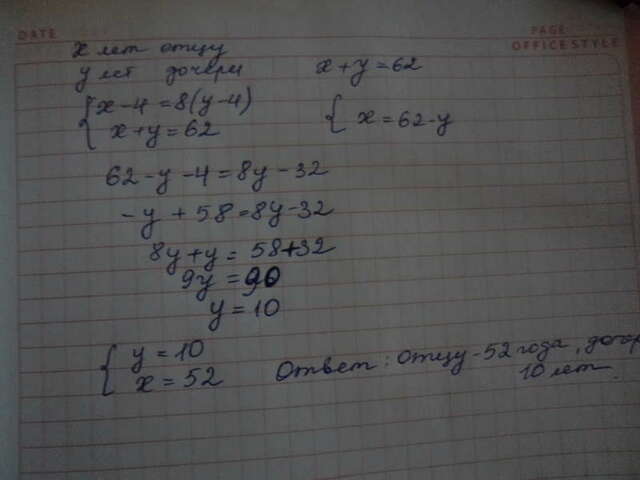 DATE
PAGE
OFFICE STYLE
x лет отцу
y лет дочери
x+y=62
{ x-4=8(y-4)
x+y=62
{ x=62-y
62-y-4=8y-32
-y+58=8y-32
8y+y=58+32
9y=90
y=10
{ y=10
x=52
Ответ: отцу-52 года,
10 лет.